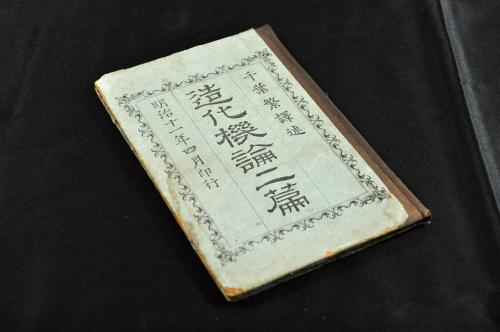 千葉繁譯述
造化機論二篇
明治十一年四月印行